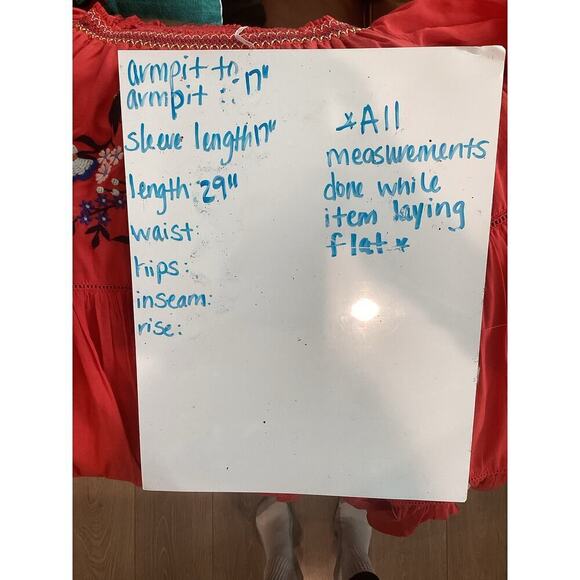 armpit to
armpit :: 17"
sleeve length 17"
length: 29"
waist:
hips:
inseam:
rise:
*All
measurements
done while
item laying
flat*